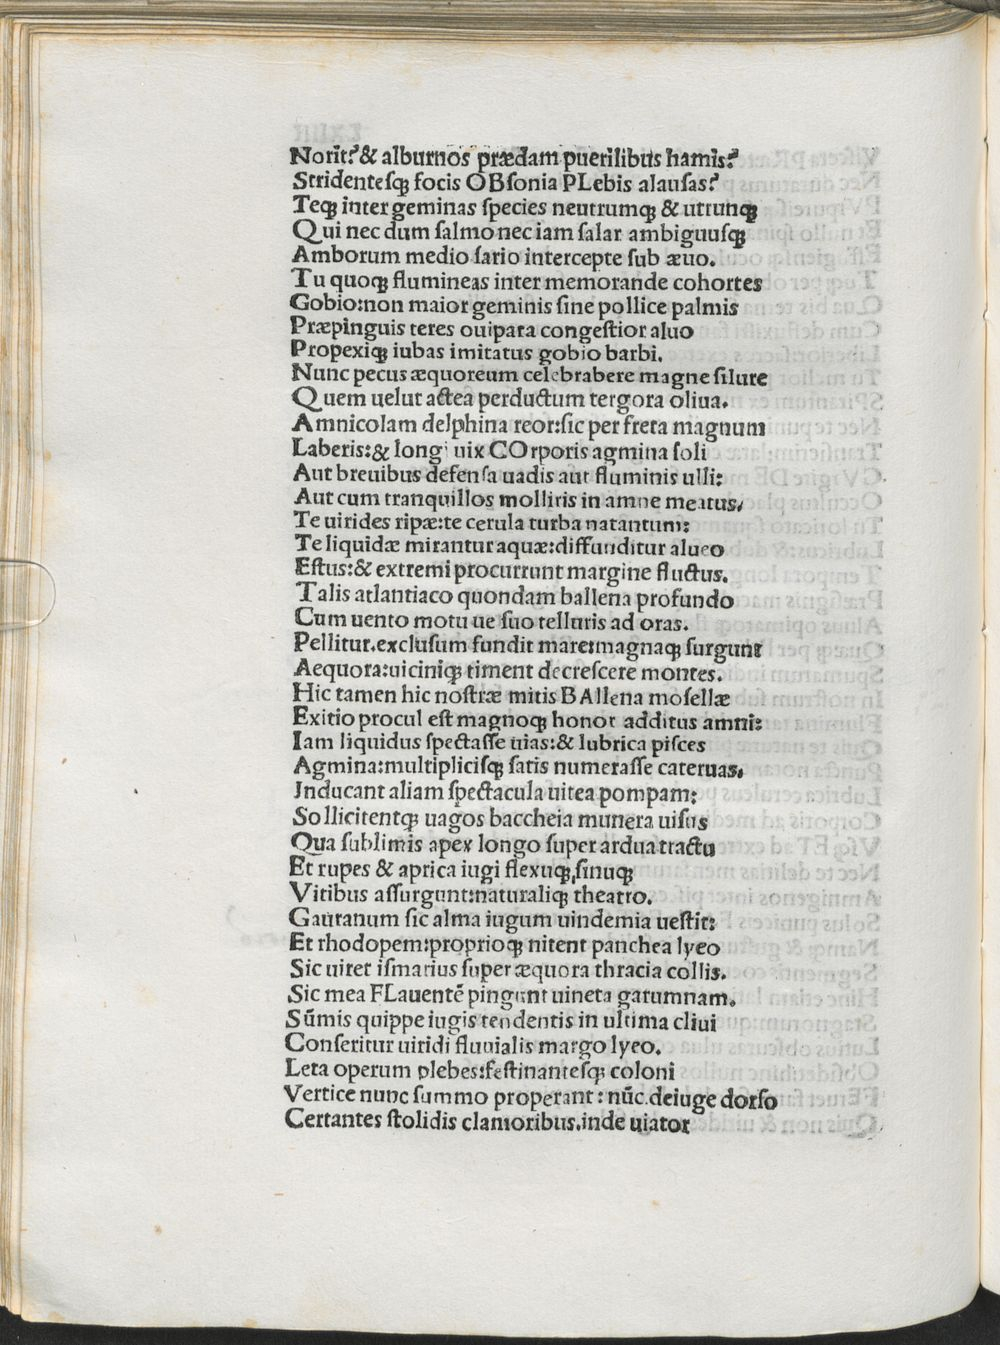 Norit? & alburnos prædam puerilibus hamis?
Stridentesqꝫ focis OBsonia PLebis alausas?
Teqꝫ inter geminas species neutrumqꝫ & utrunqꝫ
Qui nec dum salmo nec iam salar ambiguusqꝫ
Amborum medio sario intercepte sub æuo.
Tu quoqꝫ flumineas inter memorande cohortes
Gobio:non maior geminis sine pollice palmis
Præpinguis teres ouipara congestior aluo
Propexiqꝫ iubas imitatus gobio barbi.
Nunc pecus æquoreum celebrabere magne silure
Quem uelut actea perductum tergora oliua.
Amnicolam delphina reor:sic per freta magnum
Laberis:& longi uix COrporis agmina soli
Aut breuibus defensa uadis aut fluminis ulli:
Aut cum tranquillos moliris in amne meatus.
Te uirides ripæ:te cerula turba natantum:
Te liquidæ mirantur aquæ:diffunditur alueo
Estus:& extremi procurrunt margine fluctus.
Talis atlantiaco quondam ballena profundo
Cum uento motu ue suo telluris ad oras.
Pellitur.exclusum fundit mare:magnaqꝫ surgunt
Aequora:uiciniqꝫ timent decrescere montes.
Hic tamen hic nostræ mitis BAllena mosellæ
Exitio procul est magnoqꝫ honor additus amni:
Iam liquidus spectasse uias:& lubrica pisces
Agmina:multiplicisqꝫ satis numerasse cateruas.
Inducant aliam spectacula uitea pompam:
Sollicitentqꝫ uagos baccheia munera uisus
Qua sublimis apex longo super ardua tractu
Et rupes & aprica iugi flexuqꝫ,sinuqꝫ
Vitibus assurgunt:naturaliqꝫ theatro.
Gauranum sic alma iugum uindemia uestit:
Et rhodopem:proprioqꝫ nitent panchea lyeo
Sic uiret ismarius super æquora thracia collis.
Sic mea FLauentē pingunt uineta garumnam.
Sūmis quippe iugis tendentis in ultima cliui
Conseritur uiridi fluuialis margo lyeo.
Leta operum plebes:festinantesqꝫ coloni
Vertice nunc summo properant : nūc.deiuge dorso
Certantes stolidis clamoribus.inde uiator